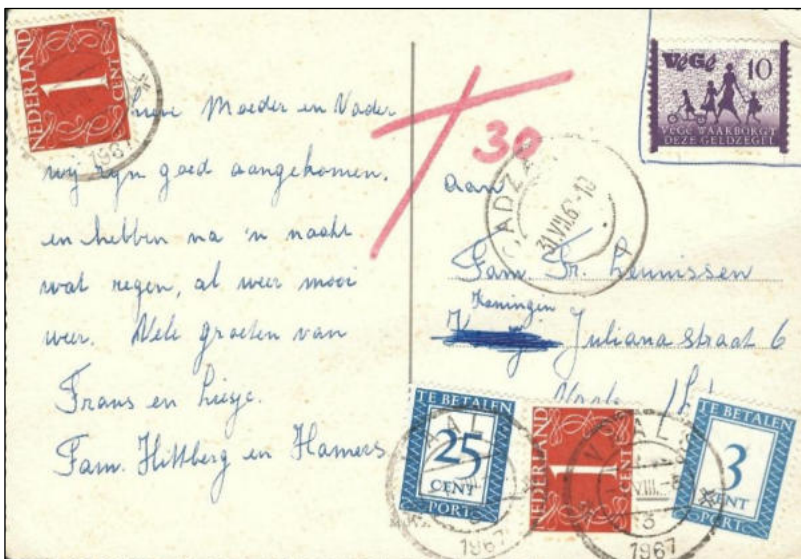 NEDERLAND
1
CENT
1967
Moeder en Vader
wij zijn goed aangekomen.
en hebben na 'n nacht
wat regen, al weer mooi
weer. Vele groeten van
Frans en Liesje.
Fam. Hittberg en Hamers
T 30
VéGé 10
VéGé WAARBORGT
DEZE GELDZEGEL
CADZA
31 VII
aan
Fam. Fr. Leunissen
Koningin
Juliana straat 6
TE BETALEN
25
CENT
PORT
NEDERLAND
1
CENT
TE BETALEN
3
CENT
PORT
AALS
1967
VAALS
VIII
1967